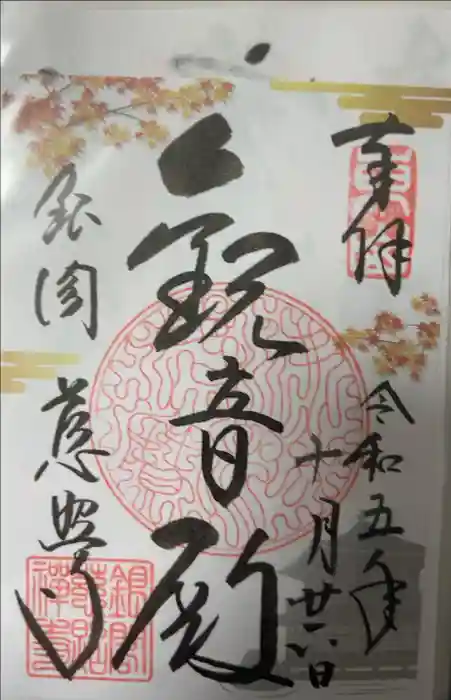 奉拝
令和五年
十月廿六日
観音殿
銀閣
慈照寺
銀閣
慈照
禅寺